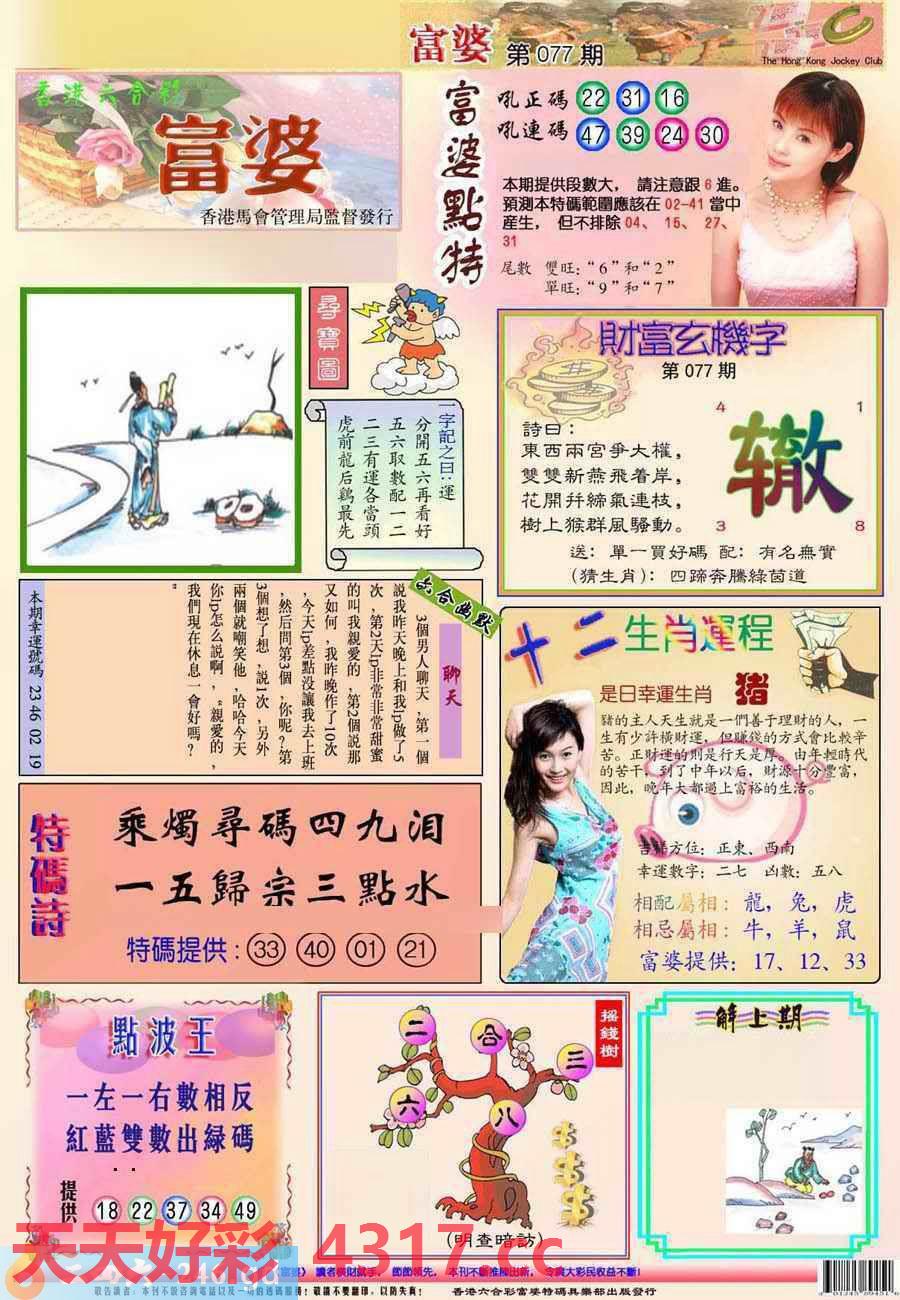 富婆 第 077 期
The Hong Kong Jockey Club
香港六合彩
富婆
香港馬會管理局監督發行
富婆點特
吼正碼 22 31 16
吼連碼 47 39 24 30
本期提供段數大， 請注意跟 6 進。
預測本特碼範圍應該在 02-41 當中
産生， 但不排除 04、 15、 27、
31
尾數 雙旺:“6”和“2”
單旺:“9”和“7”
尋寶圖
一字記之曰:運
分開五六再看好
五六取數配一二
二三有運各當頭
虎前龍后鷄最先
財富玄機字
第 077 期
詩曰:
東西兩宮爭大權，
雙雙新燕飛着岸，
花開幷締氣連枝，
樹上猴群風騷動。
4 1
轍
3 8
送: 單一買好碼 配: 有名無實
(猜生肖): 四蹄奔騰綠茵道
六合幽默
聊天
3個男人聊天,第一個
説我昨天晚上和我lp做了5
次,第2天lp非常非常甜蜜
的叫我親愛的,第2個説那
又如何,我昨晚作了10次
,今天lp差點没讓我去上班
,然后問第3個,你呢?第
3個想了想,説1次,另外
兩個就嘲笑他,哈哈今天
你lp怎么説啊,“親愛的,
我們現在休息一會好嗎?
”
本期幸運號碼 23 46 02 19
十二生肖運程
是日幸運生肖 猪
豬的主人天生就是一們善于理財的人，一
生有少許橫財運，但賺錢的方式會比較辛
苦。正財運的則是行天是厚。由年輕時代
的苦干，到了中年以后，財源十分豐富，
因此，晚年大都過上富裕的生活。
吉祥方位: 正東、西南
幸運數字: 二七 凶數: 五八
相配屬相: 龍，兔，虎
相忌屬相: 牛，羊，鼠
富婆提供: 17、12、33
特碼詩
乘燭尋碼四九泪
一五歸宗三點水
特碼提供: 33 40 01 21
點波王
一左一右數相反
紅藍雙數出緑碼
提供 18 22 37 34 49
搖錢樹
二 合 三
六 八
(明查暗訪)
解上期
天天好彩 4317.cc
富婆》 讀者橫財就手， 節節領先， 本刊不斷推陳出新， 令廣大彩民收益不斷!
敬告讀者: 本刊不設咨詢電話以及一切的透碼服務! 敬請不要翻印, 以防失真!
香港六合彩富婆特碼俱樂部出版發行